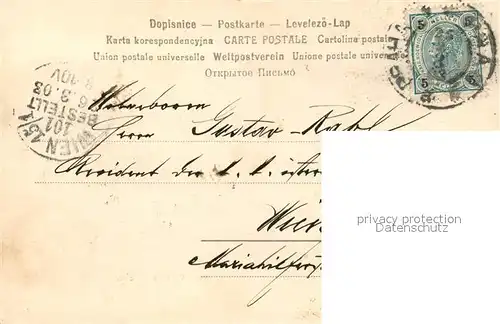 Dopisnice — Postkarte — Levelező-Lap
Karta korespondencyjna CARTE POSTALE Cartolina postale
Union postale universelle Weltpostverein Unione postale univers
Открытое Письмо
5 5
5 5
WIEN
101
BESTELLT
6.3.03
Herrn Gustav
Präsident des k. k. österr
Wien
Mariahilfer
privacy protection
Datenschutz